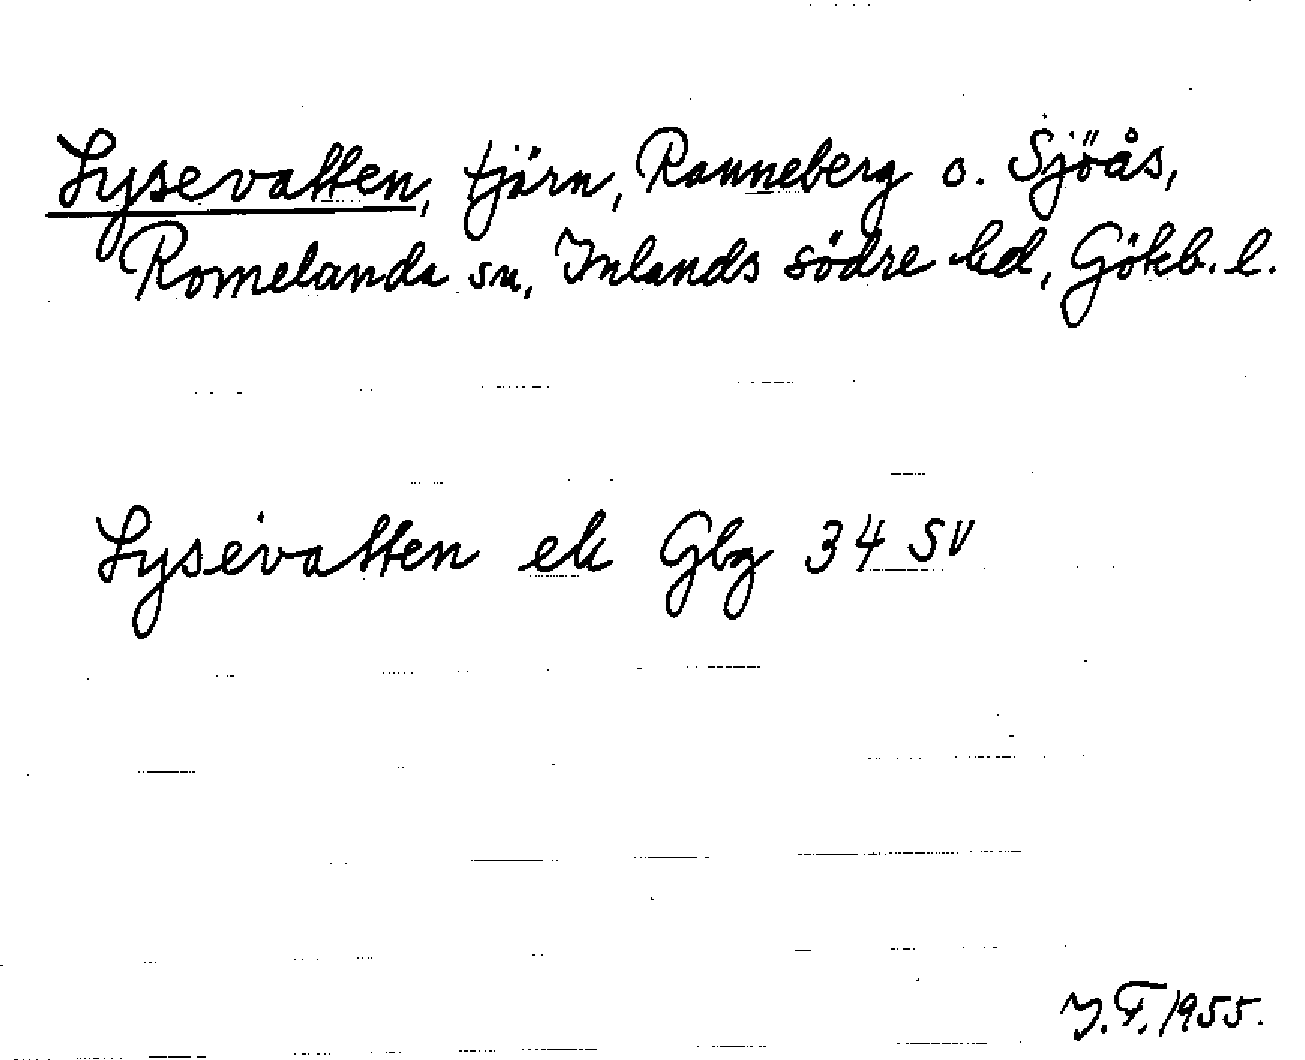 Lysevatten, tjärn, Ranneberg o. Sjöås,
Romelanda sn, Inlands södre hd, Göteb. l.
Lysevatten ek Gbg 34 SV
J.F. 1955.